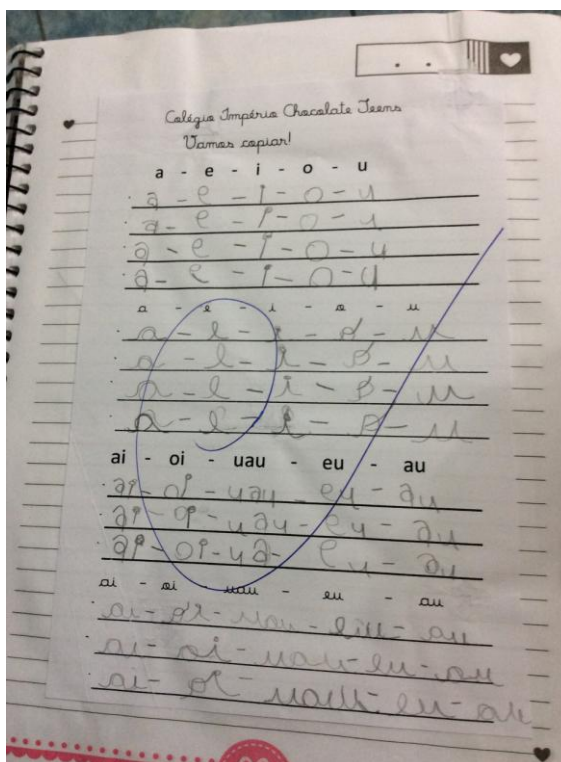 Colégio Império Chocolate Teens
Vamos copiar!
a - e - i - o - u
a - e - i - o - u
a - e - i - o - u
a - e - i - o - u
a - e - i - o - u
a - e - i - o - u
a - e - i - o - u
a - e - i - o - u
a - e - i - o - u
a - e - i - o - u
ai - oi - uau - eu - au
ai - oi - uau - eu - au
ai - oi - uau - eu - au
ai - oi - ua - eu - au
ai - oi - uau - eu - au
ai - oi - uau - eiu - au
ai - oi - uau - eu - au
ai - oi - uau - eu - au